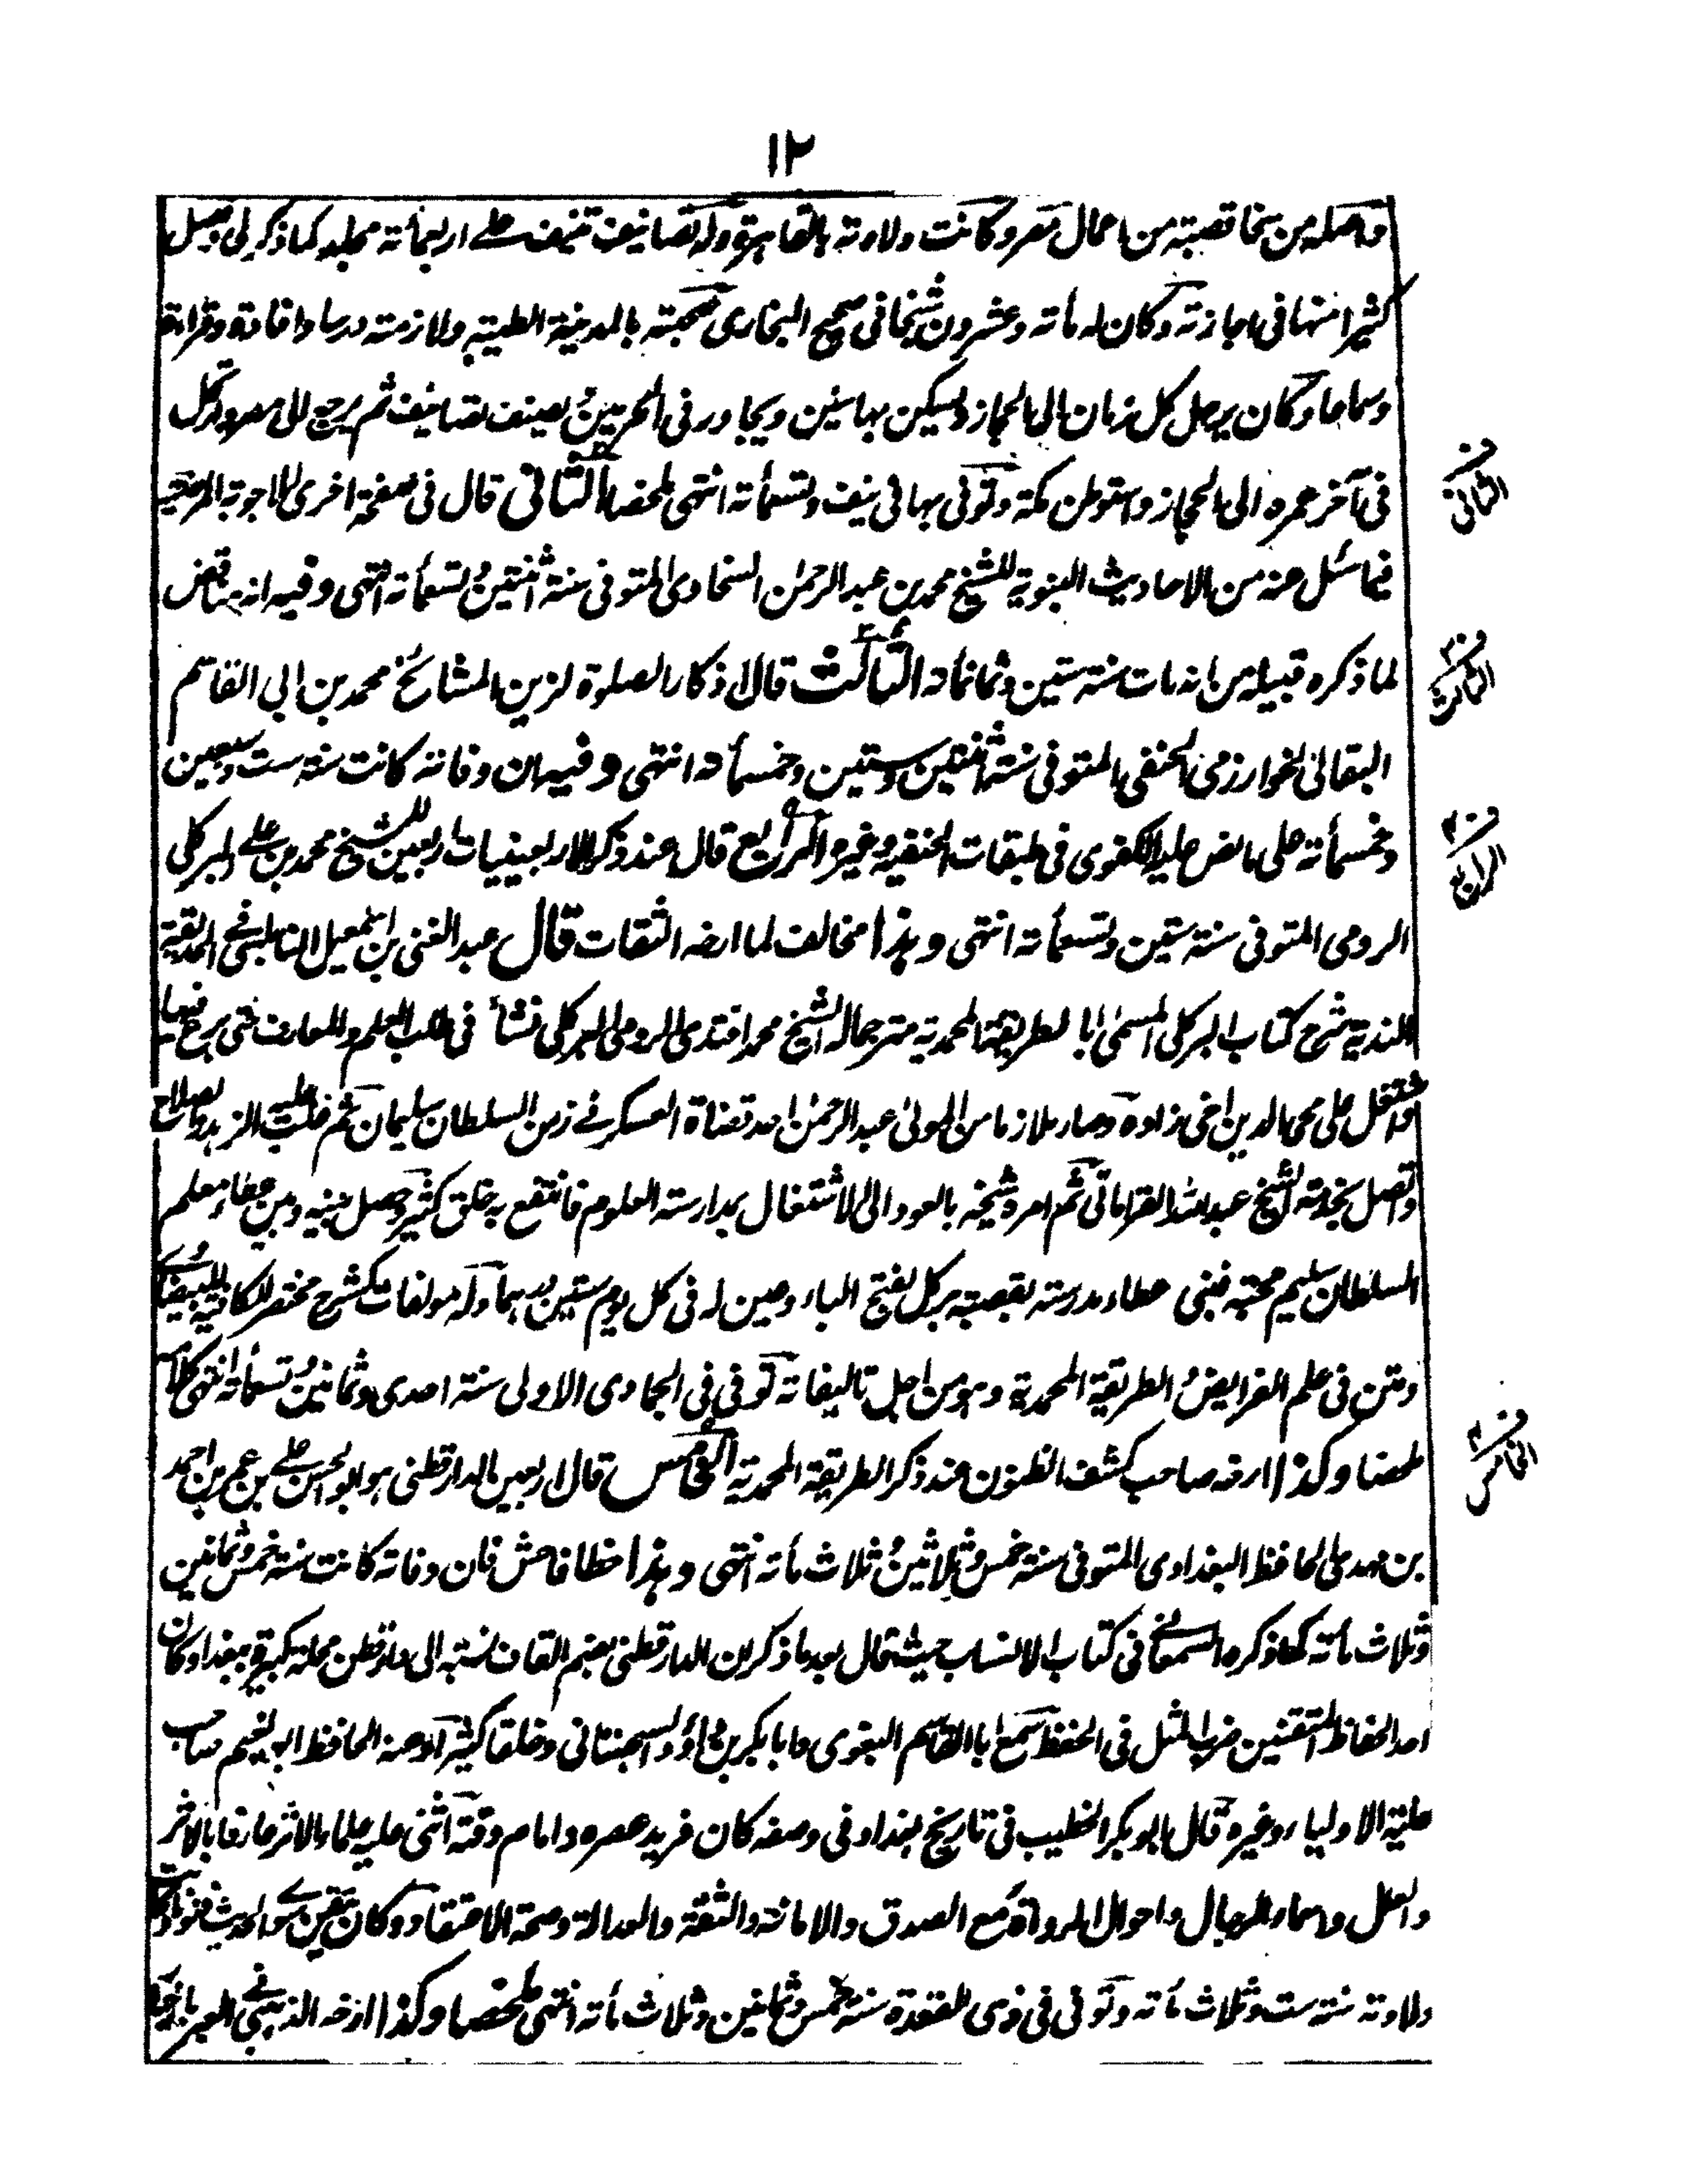 ١٢
واصله من سخا قصبته من اعمال مصر وكانت ولادته بالقاهرة وله تصانيف تنيف على اربعمأته مجلد كما ذكر لى وصل
كثيرا منها فى اجازته وكان له مأته وعشرون شيخا فى صحيح البخارى صحبته بالمدينة الطيبة ولازمته درسا وافادة وقراءة
وسماعا وكان يرحل كل زمان الى الحجاز ويسكن بها سنين ويجاور فى الحرمين ويصنف تصانيف ثم يرجع الى مصر
فى آخر عمره الى الحجاز واستوطن مكة وتوفى بها فى نيف وتسعمأته انتهى ملخصا الثانى قال فى صفحة اخرى الاجوبة المرضية
الثانى
فيما سئل عنه من الاحاديث النبوية للشيخ محمد بن عبد الرحمن السخاوى المتوفى سنة اثنتين وتسعمأته انتهى وفيه انه مناقض
لما ذكره قبيله من انه مات سنة ستين وثمانمأته الثالث قال اذكار الصلوة لزين المشائخ محمد بن ابى القاسم
الثالث
البقالى الخوارزمى الحنفى المتوفى سنة اثنتين وستين وخمسمأته انتهى وفيه ان وفاته كانت سنة ست وسبعين
وخمسمأته على ما نص عليه الكفوى فى طبقات الحنفية وغيره الرابع قال عند ذكر الاربعينيات اربعين للشيخ محمد بن على البركلى
الرابع
الرومى المتوفى سنة ستين وتسعمأته انتهى وهذا مخالف لما ارخه الثقات قال عبد الغنى بن اسمعيل النابلسى فى الحديقة
الندية شرح كتاب البركلى المسمى بالطريقة المحمدية مترجما له الشيخ محمد افندى الرومى البركلى نشأ فى طلب العلم والمعارف حتى برع فيها
واشتغل على محى الدين اخى زاده وصار ملازما من المولى عبد الرحمن احد قضاة العسكر فى زمن السلطان سليمان ثم غلب عليه الزهد والصلاح
واتصل بخدمة الشيخ عبد الله القرامانى ثم امره شيخه بالعود الى الاشتغال بمدارسة العلوم فانتفع به خلق كثير وحصل بينه وبين عطاء معلم
السلطان سليم محبة فبنى عطاء مدرسته بقصبته بركل بفتح الباء وعين له فى كل يوم ستين درهما وله مولفات كشرح مختصر الكافية للبيضاوى
ومتن فى علم الفرايض والطريقة المحمدية وهو من اجل تاليفاته توفى فى الجمادى الاولى سنة احدى وثمانين وتسعمأته انتهى كلامه
ملخصا وكذا ارخه صاحب كشف الظنون عند ذكر الطريقة المحمدية الخامس قال اربعين الدارقطنى هو ابو الحسن على بن عمر بن احمد
الخامس
بن مهدى الحافظ البغدادى المتوفى سنة خمس وثلاثين وثلاث مأته انتهى وهذا خطا فاحش فان وفاته كانت سنة خمس وثمانين
وثلاث مأته كما ذكره السمعانى فى كتاب الانساب حيث قال بعد ما ذكر ان الدارقطنى بضم القاف نسبته الى دارقطن محلة كبيرة ببغداد كان
احد الحفاظ المتقنين ضرب المثل فى الحفظ سمع ابا القاسم البغوى وابا بكر بن ابى داؤد السجستانى وخلقا كثيرا روى عنه الحافظ ابو نعيم صاحب
حلية الاولياء وغيره قال ابو بكر الخطيب فى تاريخ بغداد فى وصفه كان فريد عصره وامام وقته اثنى عليه علماء الاثر عارفا بالاثر
والعلل واسماء الرجال واحوال الرواة مع الصدق والامانة والثقة والعدالة وصحة الاعتقاد وكان
ولادته سنة ست وثلاث مأته وتوفى فى ذى القعدة سنة خمس وثمانين وثلاث مأته انتهى ملخصا وكذا ارخه الذهبى فى العبر